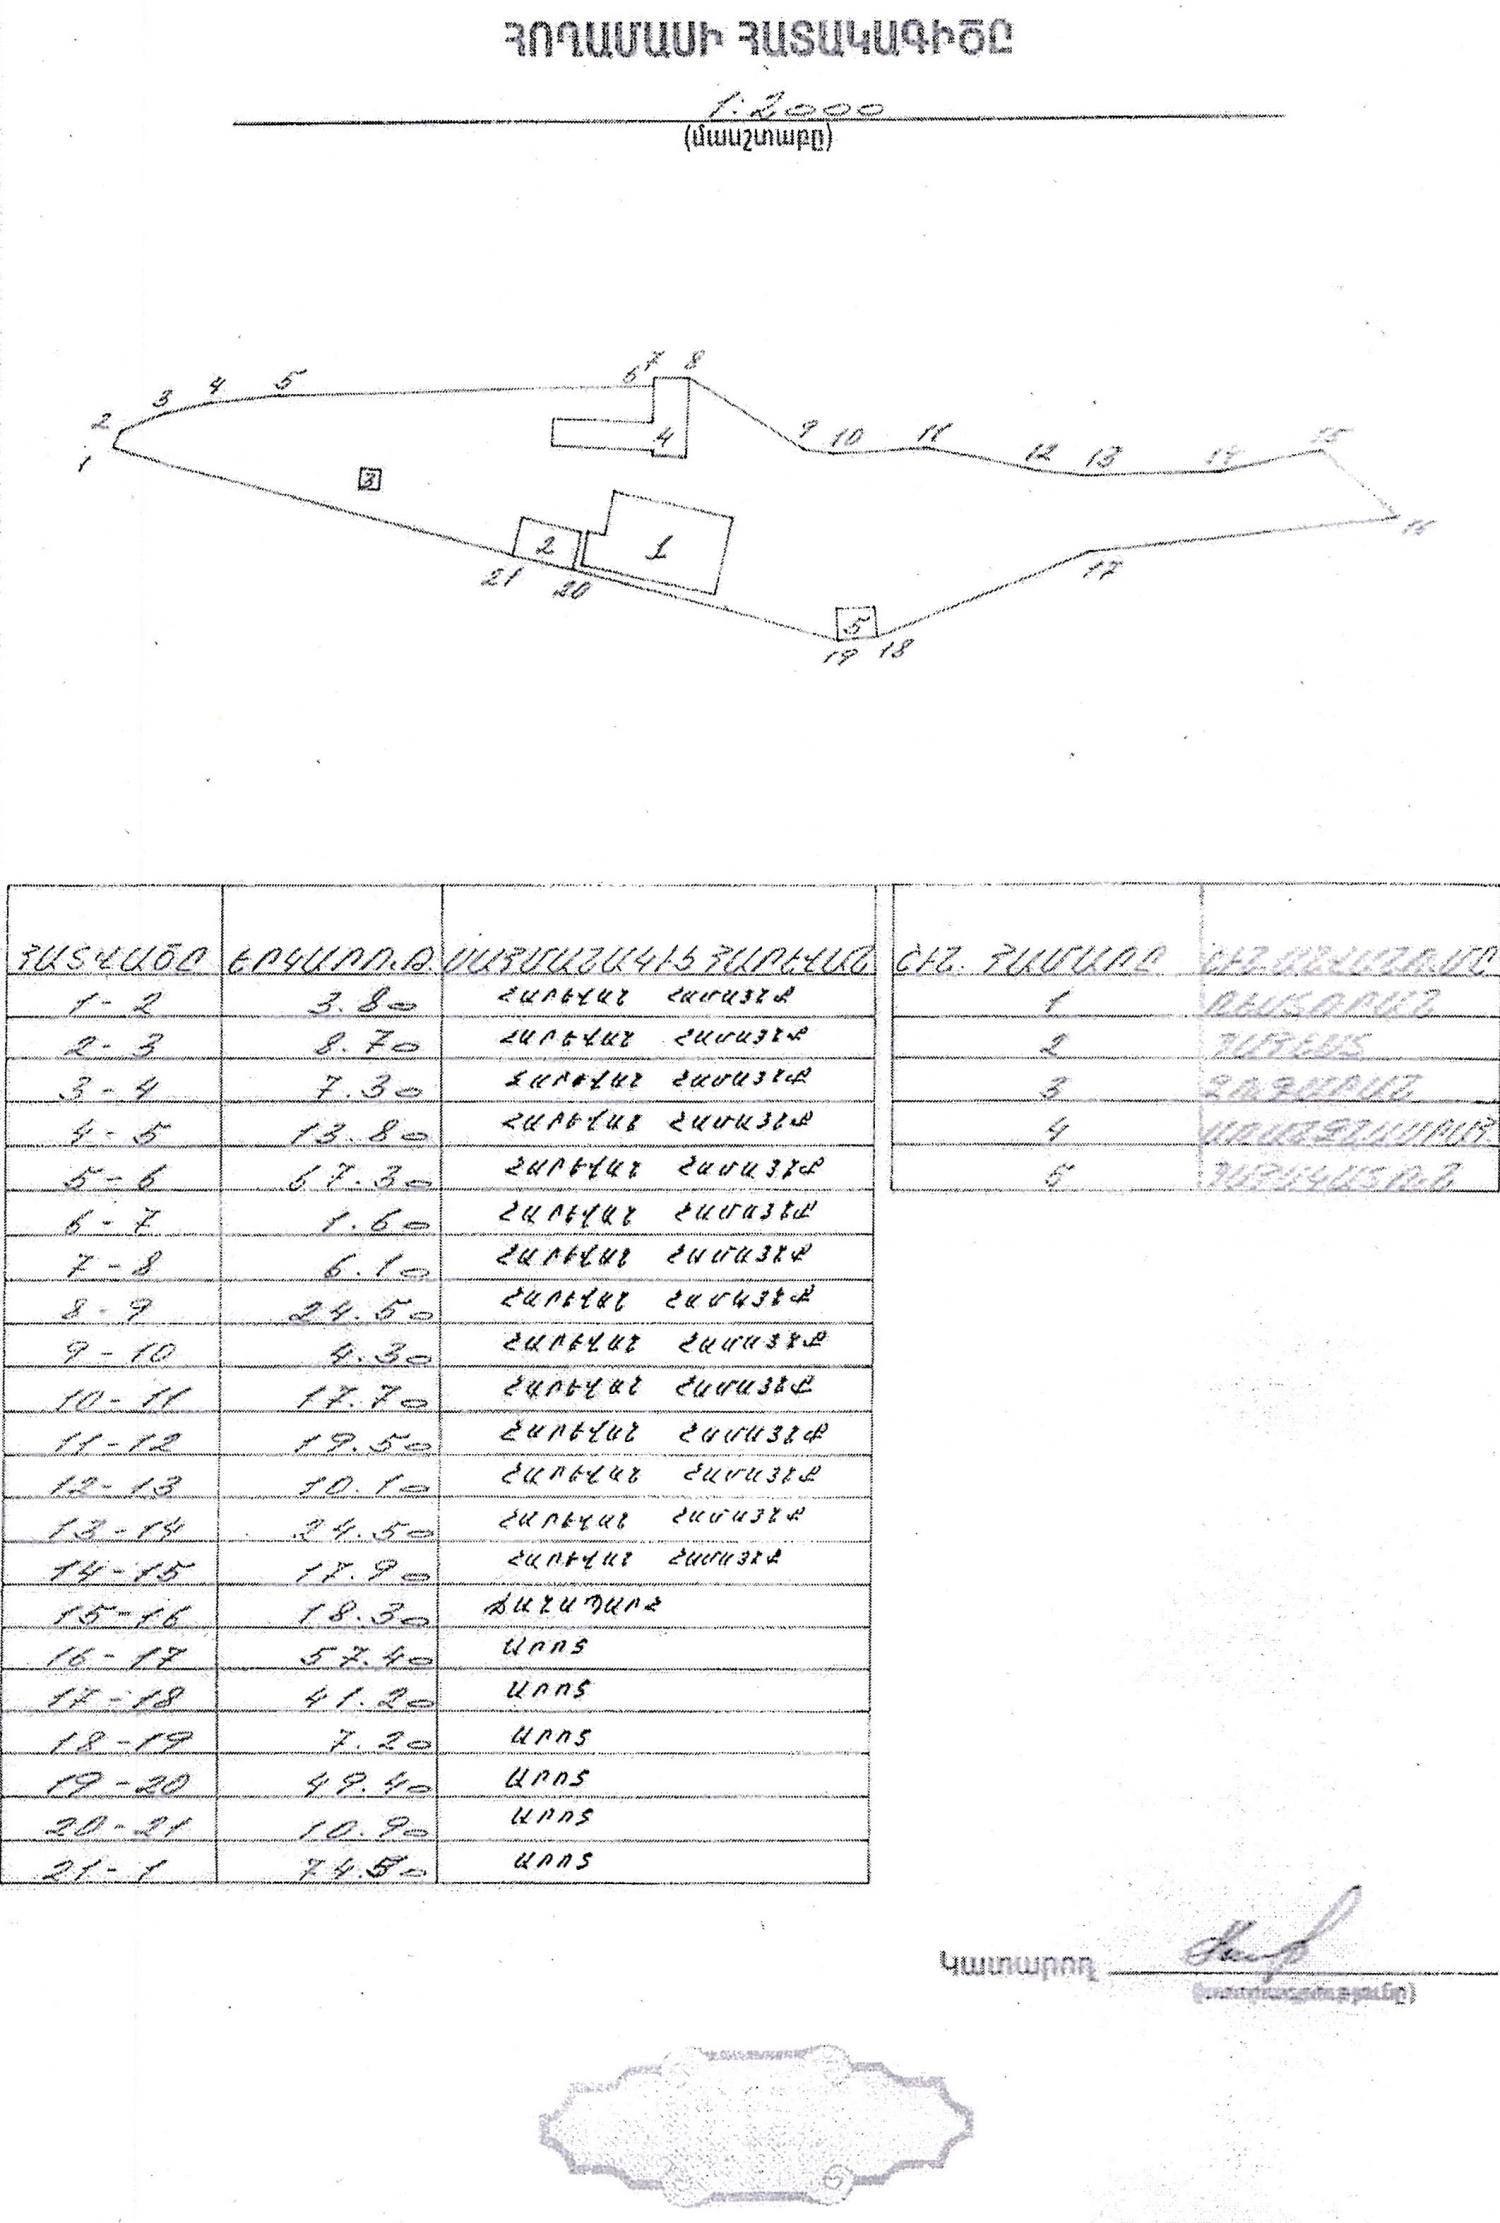 ՀՈՂԱՄԱՍԻ ՀԱՏԱԿԱԳԻԾԸ
1:2000
(մասշտաբը)
7 8
6
5
4
3
2
1
4
9 10
11
12 13
14
15
16
17
3
2
1
21
20
5
19 18
ՀԱՏՎԱԾԸ ԵՐԿԱՐՈՒԹ. ՍԱՀՄԱՆԱԿԻՑ ՀԱՐԵՎԱՆ
1-2 3.80 ՀԱՐԵՎԱՆ ՀԱՄԱՅՆՔ
2-3 8.70 ՀԱՐԵՎԱՆ ՀԱՄԱՅՆՔ
3-4 7.30 ՀԱՐԵՎԱՆ ՀԱՄԱՅՆՔ
4-5 13.80 ՀԱՐԵՎԱՆ ՀԱՄԱՅՆՔ
5-6 67.30 ՀԱՐԵՎԱՆ ՀԱՄԱՅՆՔ
6-7 1.60 ՀԱՐԵՎԱՆ ՀԱՄԱՅՆՔ
7-8 6.10 ՀԱՐԵՎԱՆ ՀԱՄԱՅՆՔ
8-9 24.50 ՀԱՐԵՎԱՆ ՀԱՄԱՅՆՔ
9-10 4.30 ՀԱՐԵՎԱՆ ՀԱՄԱՅՆՔ
10-11 17.70 ՀԱՐԵՎԱՆ ՀԱՄԱՅՆՔ
11-12 19.50 ՀԱՐԵՎԱՆ ՀԱՄԱՅՆՔ
12-13 10.10 ՀԱՐԵՎԱՆ ՀԱՄԱՅՆՔ
13-14 24.50 ՀԱՐԵՎԱՆ ՀԱՄԱՅՆՔ
14-15 17.90 ՀԱՐԵՎԱՆ ՀԱՄԱՅՆՔ
15-16 18.30 ՃԱՆԱՊԱՐՀ
16-17 57.40 ԱՐՈՏ
17-18 41.20 ԱՐՈՏ
18-19 7.20 ԱՐՈՏ
19-20 49.40 ԱՐՈՏ
20-21 10.90 ԱՐՈՏ
21-1 74.50 ԱՐՈՏ
ՇԻՆ. ՀԱՄԱՐԸ ՇԻՆ.ԱՆՎԱՆՈՒՄԸ
1 ՌԵՍՏՈՐԱՆ
2 ՊԱՀԵՍՏ
3 ԶՈՒԳԱՐԱՆ
4 ԱՌԱՆՁՆԱՍԵՆՅԱԿ
5 ՊԱՀԱԿԱՏՈՒՆ
Կատարող
(ստորագրությունը)